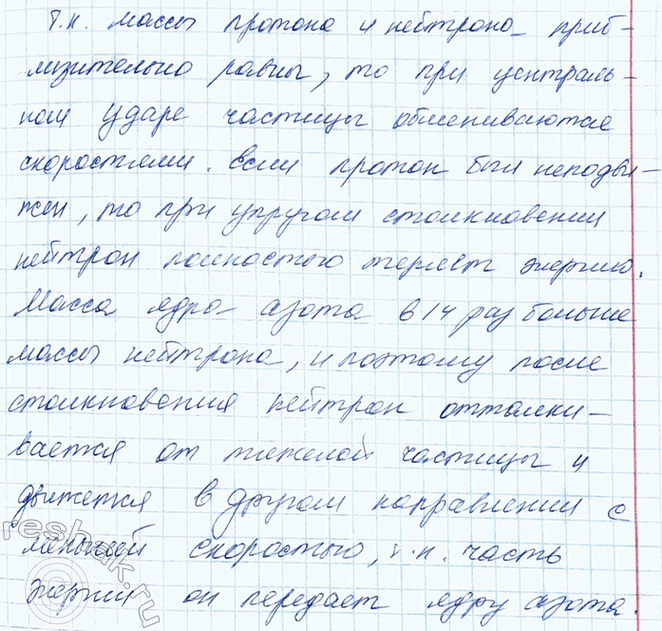 Т.к. массы протона и нейтрона приб-
лизительно равны, то при централь-
ном ударе частицы обмениваются
скоростями. Если протон был неподви-
жен, то при упругом столкновении
нейтрон полностью теряет энергию.
Масса ядра азота в 14 раз больше
массы нейтрона, и поэтому после
столкновения нейтрон отталки-
вается от тяжелой частицы и
движется в другом направлении с
меньшей скоростью, т.к. часть
энергии он передает ядру азота.
reshak.ru